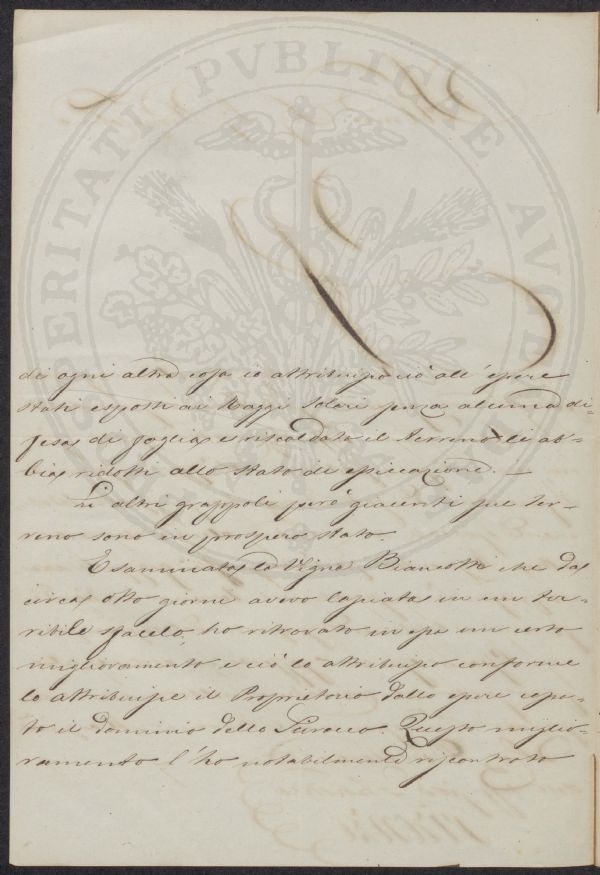 PROSPERITATI PVBLICÆ AVGENDÆ
di ogni altra cosa io attribuisco ciò all'essere
stati esposti ai Raggi Solari senza alcuna di-
fesa di foglia e riscaldato il terreno li ab-
bia ridotti allo stato di essiccazione. —
Li altri grappoli però giacenti sul ter-
reno sono in prospero stato.
Esaminata la Vigna Biancotti che da
circa otto giorni avevo lasciata in un ter-
ribile sfacelo, ho ritrovato in essa un certo
miglioramento e ciò lo attribuisco conforme
lo attribuisce il Proprietario dallo essere cessa-
to il dominio dello Scirocco. Questo miglio-
ramento l'ho notabilmente riscontrato